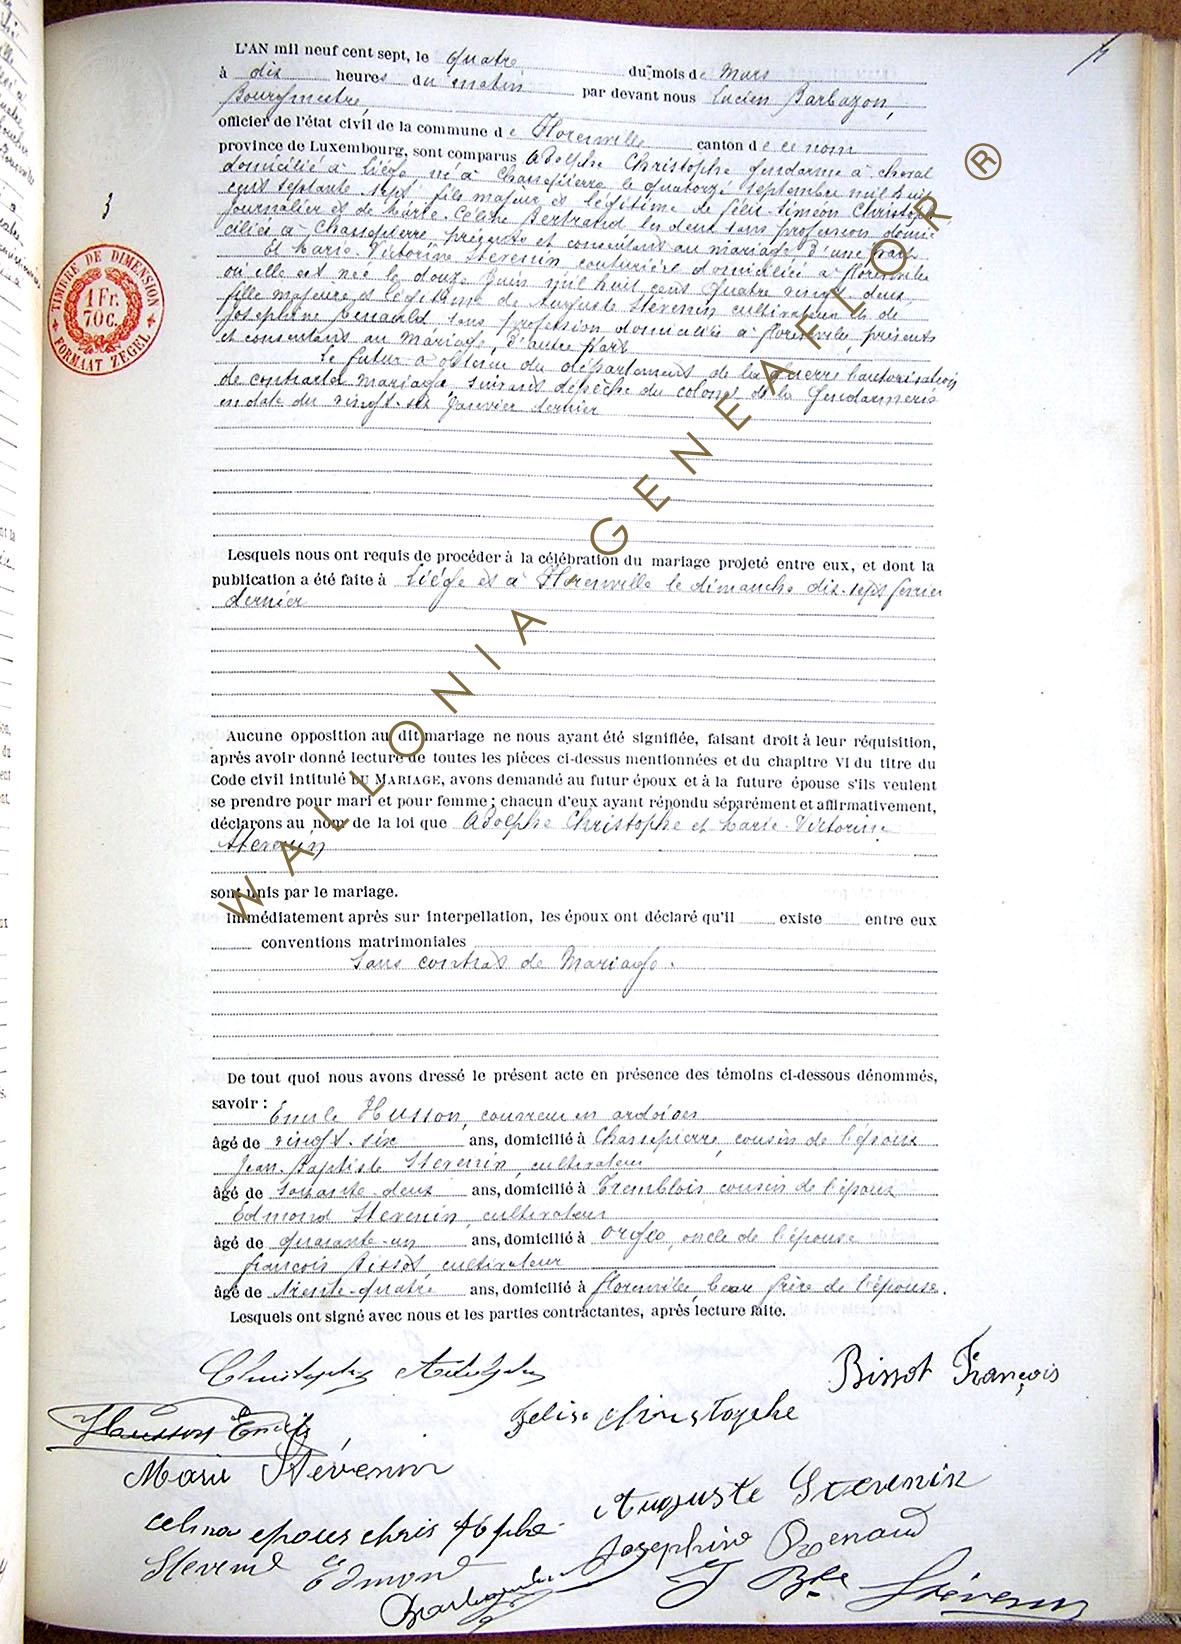 L'AN mil neuf cent sept, le quatre du mois de Mars
à dix heures du matin par devant nous Lucien Barbazon,
Bourgmestre,
officier de l'état civil de la commune de Florenville canton de ce nom
province de Luxembourg, sont comparus Adolphe Christophe gendarme à cheval
domicilié à Liége né à Chassepierre le quatorze septembre mil huit
cent septante sept fils majeur et légitime de Félix Siméon Christophe
journalier et de Marie Bertrand les deux sans profession domi-
ciliés à Chassepierre, présents et consentant au mariage, d'une part
Et Marie Victorine Stevenin couturière domiciliée à Florenville
où elle est née le douze Juin mil huit cent quatre vingt deux
fille majeure et légitime de Auguste Stevenin cultivateur et de
Joséphine Renauld, sans profession domiciliés à Florenville, présents
et consentant au mariage, d'autre part
Le futur a obtenu du département de la guerre l'autorisation
de contracter mariage, suivant dépêche du colonel de la Gendarmerie
en date du vingt-six Janvier dernier
3
TIMBRE DE DIMENSION
1 Fr.
70c.
FORMAAT ZEGEL
Lesquels nous ont requis de procéder à la célébration du mariage projeté entre eux, et dont la
publication a été faite à Liége et à Florenville le dimanche dix-sept février
dernier
Aucune opposition au dit mariage ne nous ayant été signifiée, faisant droit à leur réquisition,
après avoir donné lecture de toutes les pièces ci-dessus mentionnées et du chapitre VI du titre du
Code civil intitulé DU MARIAGE, avons demandé au futur époux et à la future épouse s'ils veulent
se prendre pour mari et pour femme ; chacun d'eux ayant répondu séparément et affirmativement,
déclarons au nom de la loi que Adolphe Christophe et Marie Victorine
Stevenin
sont unis par le mariage.
Immédiatement après sur interpellation, les époux ont déclaré qu'il existe entre eux
conventions matrimoniales
Sans contrat de Mariage.
De tout quoi nous avons dressé le présent acte en présence des témoins ci-dessous dénommés,
savoir : Emile Husson, couvreur en ardoises
âgé de vingt-six ans, domicilié à Chassepierre, cousin de l'époux
Jean-Baptiste Stevenin, cultivateur
âgé de soixante-deux ans, domicilié à Tremblois, cousin de l'époux
Edmond Stevenin, cultivateur
âgé de quarante-un ans, domicilié à Orgeo, oncle de l'épouse
François Bissot cultivateur
âgé de trente-quatre ans, domicilié à Florenville, beau frère de l'épouse.
Lesquels ont signé avec nous et les parties contractantes, après lecture faite.
Christophe Adolphe
Bissot François
Husson Emile
Felix christophe
Marie Stévenin
Auguste Stevenin
epous chris
Josephine Renaud
Edmond
J Bte Stévenin
WALLONIA GENEAFLOR ®